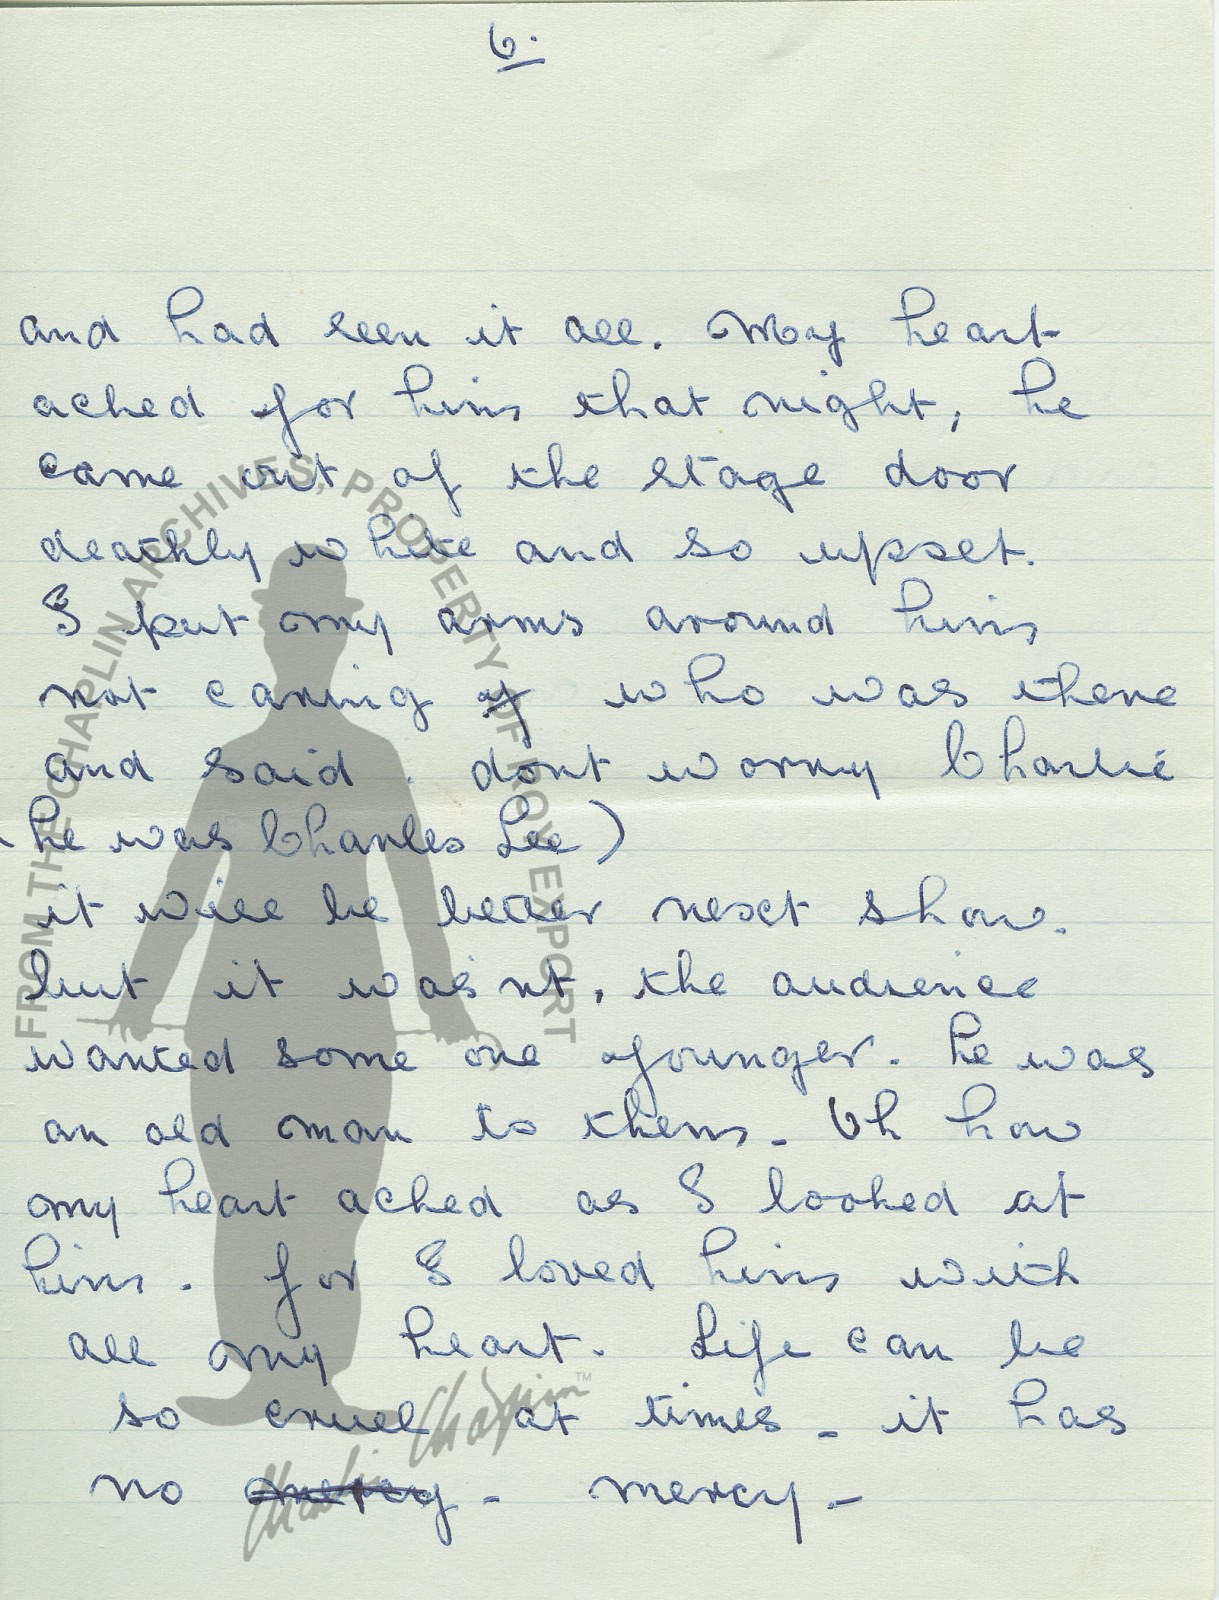 6.
and had seen it all. My heart
ached for him that night, he
came out of the stage door
deathly white and so upset.
I put my arms around him
not caring if who was there
and said. dont worry Charlie
(he was Charles Lee)
it will be better next show.
but it was'nt, the audience
wanted some one younger. he was
an old man to them. Oh how
my heart ached as I looked at
him. for I loved him with
all my heart. Life can be
so cruel at times - it has
no mercy - mercy -
FROM THE CHAPLIN ARCHIVES, PROPERTY OF ROY EXPORT
Charlie Chaplin™